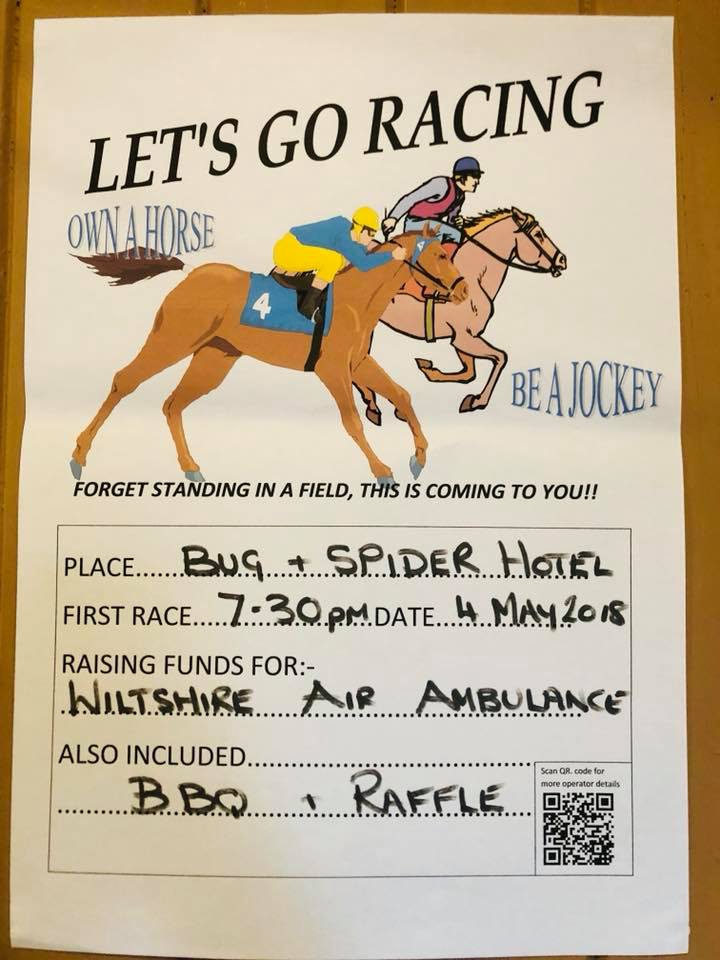 LET'S GO RACING
OWN A HORSE
4
4
BE A JOCKEY
FORGET STANDING IN A FIELD, THIS IS COMING TO YOU!!
PLACE.....BUG + SPIDER HOTEL
FIRST RACE.....7-30pm.DATE....4 MAY 2018
RAISING FUNDS FOR:-
WILTSHIRE AIR AMBULANCE
ALSO INCLUDED
BBQ + RAFFLE
Scan QR. code for
more operator details